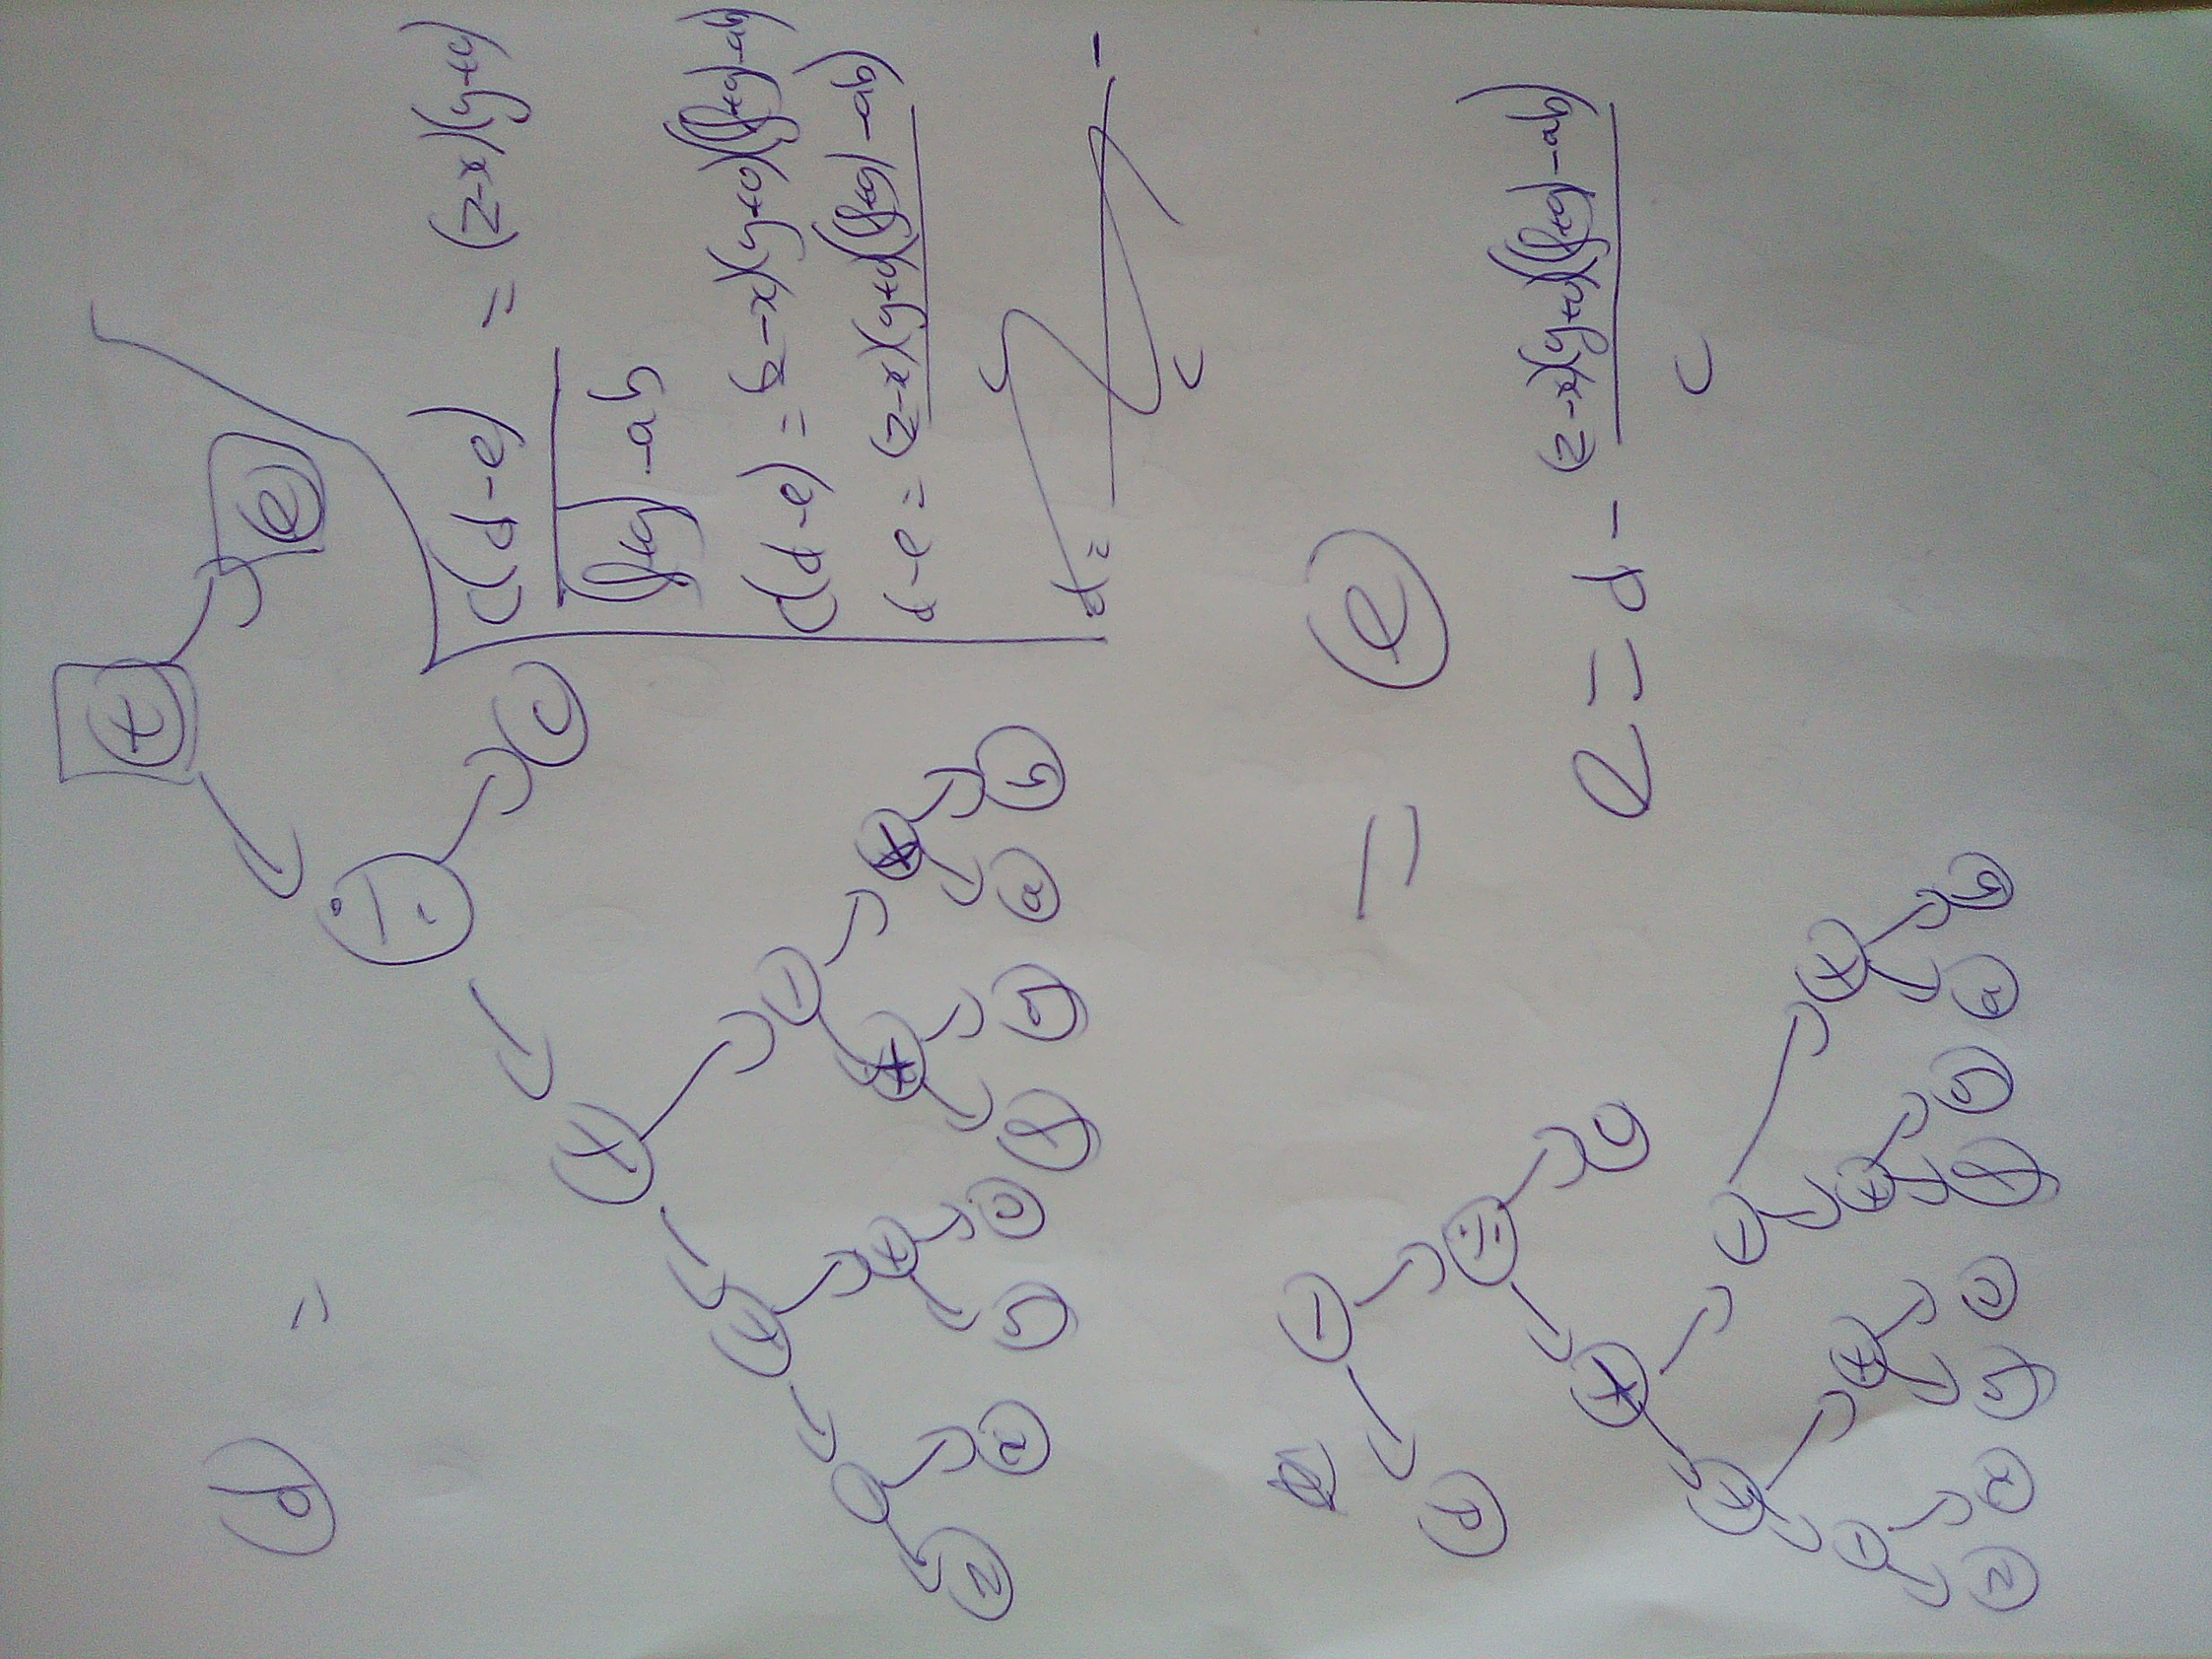 d = + e
÷ c
×
× −
+ + ×
z x y c f g a b
c(d-e) = (z-x)(y+c)
(f+g)-ab
c(d-e) = (z-x)(y+c)((f+g)-ab)
d-e = (z-x)(y+c)((f+g)-ab)
c
d =
− = e
d ÷
× c
× −
− + + ×
z x y c f g a b
e = d - (z-x)(y+c)((f+g)-ab)
c